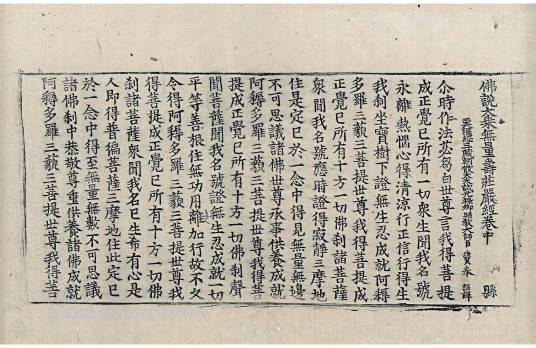 佛說大乘無量壽莊嚴經卷中 縣
西天譯經三藏朝散大夫試光祿卿明教大師臣法賢奉 詔譯
尒時作法苾芻白世尊言我得菩提
成正覺已所有一切衆生聞我名號
永離熱惱心得清涼行正信行得生
我剎坐寶樹下證無生忍成就阿耨
多羅三藐三菩提世尊我得菩提成
正覺已所有十方一切佛剎諸菩薩
衆聞我名號應時證得寂靜三摩地
住是定已於一念中得見無量無邊
不可思議諸佛世尊承事供養成就
阿耨多羅三藐三菩提世尊我得菩
提成正覺已所有十方一切佛剎聲
聞菩薩聞我名號證無生忍成就一切
平等善根住無功用離加行故不久
令得阿耨多羅三藐三菩提世尊我
得菩提成正覺已所有十方一切佛
剎諸菩薩衆聞我名已生希有心是
人即得普徧菩薩三摩地住此定已
於一念中得至無量無數不可思議
諸佛剎中恭敬尊重供養諸佛成就
阿耨多羅三藐三菩提世尊我得菩